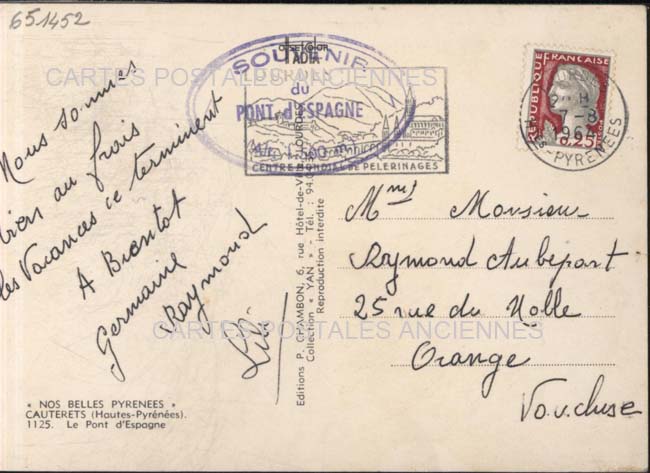 651452
CARTES POSTALES ANCIENNES
SOUVENIR
du
PONT d'ESPAGNE
CENTRE MONDIAL DE PELERINAGES
REPUBLIQUE FRANÇAISE
0,25
7-8
1964
Htes-PYRENEES
Nous sommes
bien au frais
les Vacances ce terminent
A Bientot
Germaine
Raymond
Lili
Editions P. CHAMBON, 6, rue Hôtel-de-Ville, LOURDES
Collection "YAN" - Tél. : 94.0
Reproduction interdite
Mme Monsieur
Raymond Aubepart
25 rue du Nolle
Orange
Vaucluse
CARTES POSTALES ANCIENNES
" NOS BELLES PYRENEES "
CAUTERETS (Hautes-Pyrénées).
1125. Le Pont d'Espagne